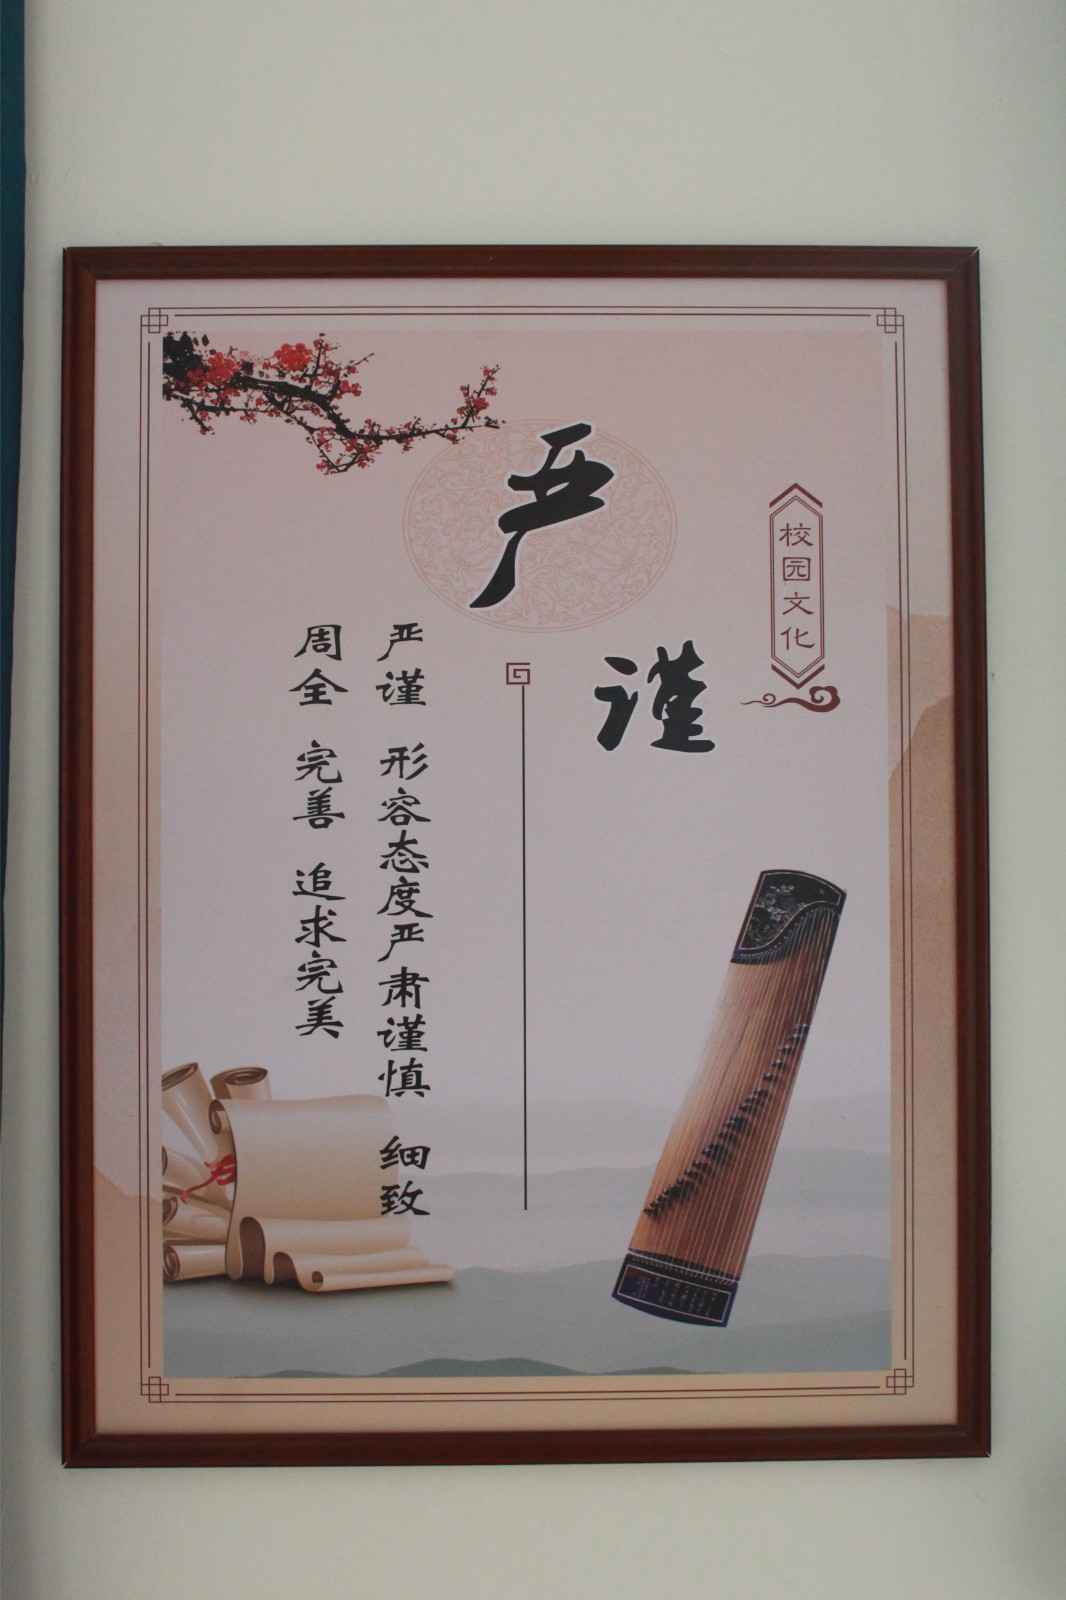 校园文化
严谨
严谨 形容态度严肃谨慎 细致
周全 完善 追求完美